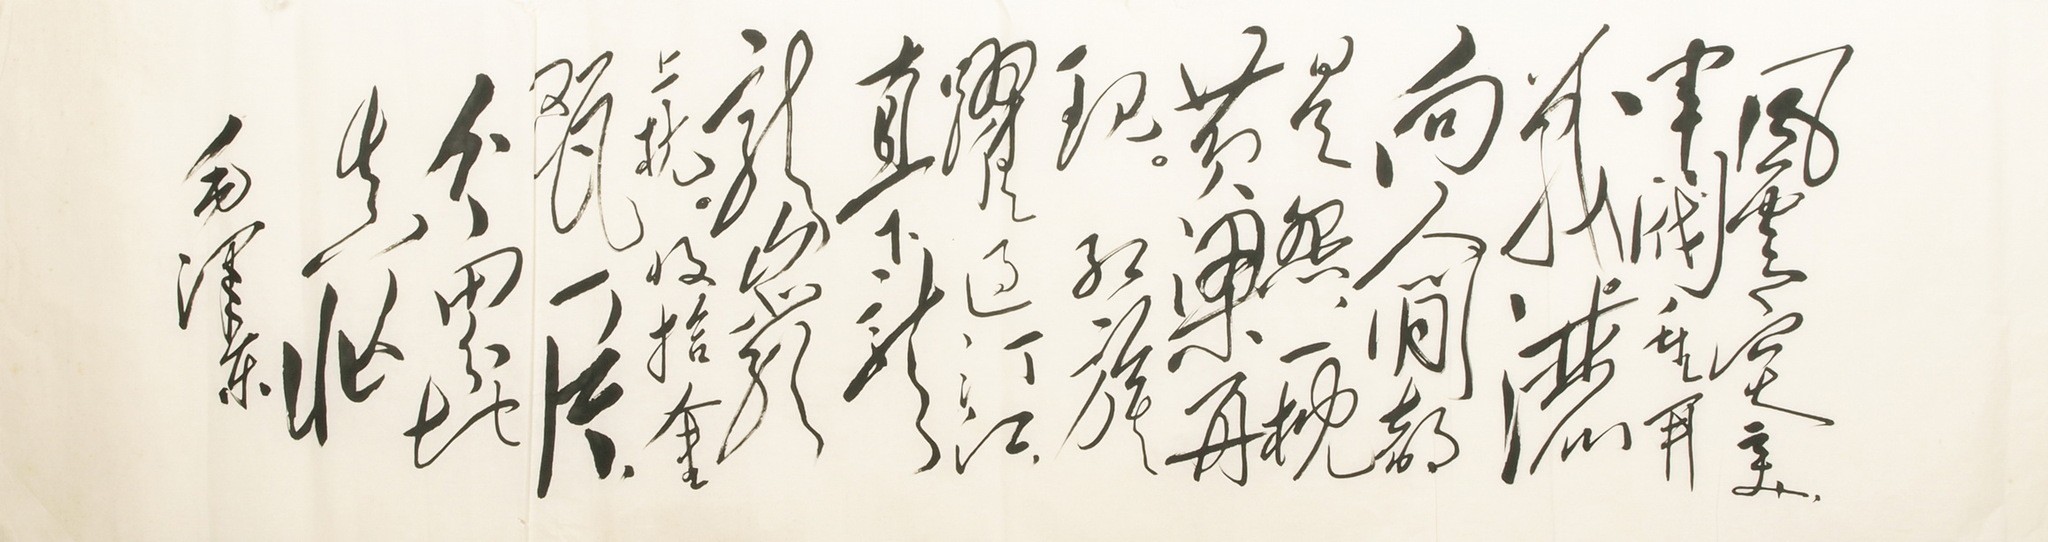 風雲突變,
軍閥重開
戰。灑
向人間都
是怨,一枕
黄粱再
現。紅旗
躍過汀江,
直下龍
龍巖
上杭。收拾金
甌一片,
分田分地
真忙
毛澤東